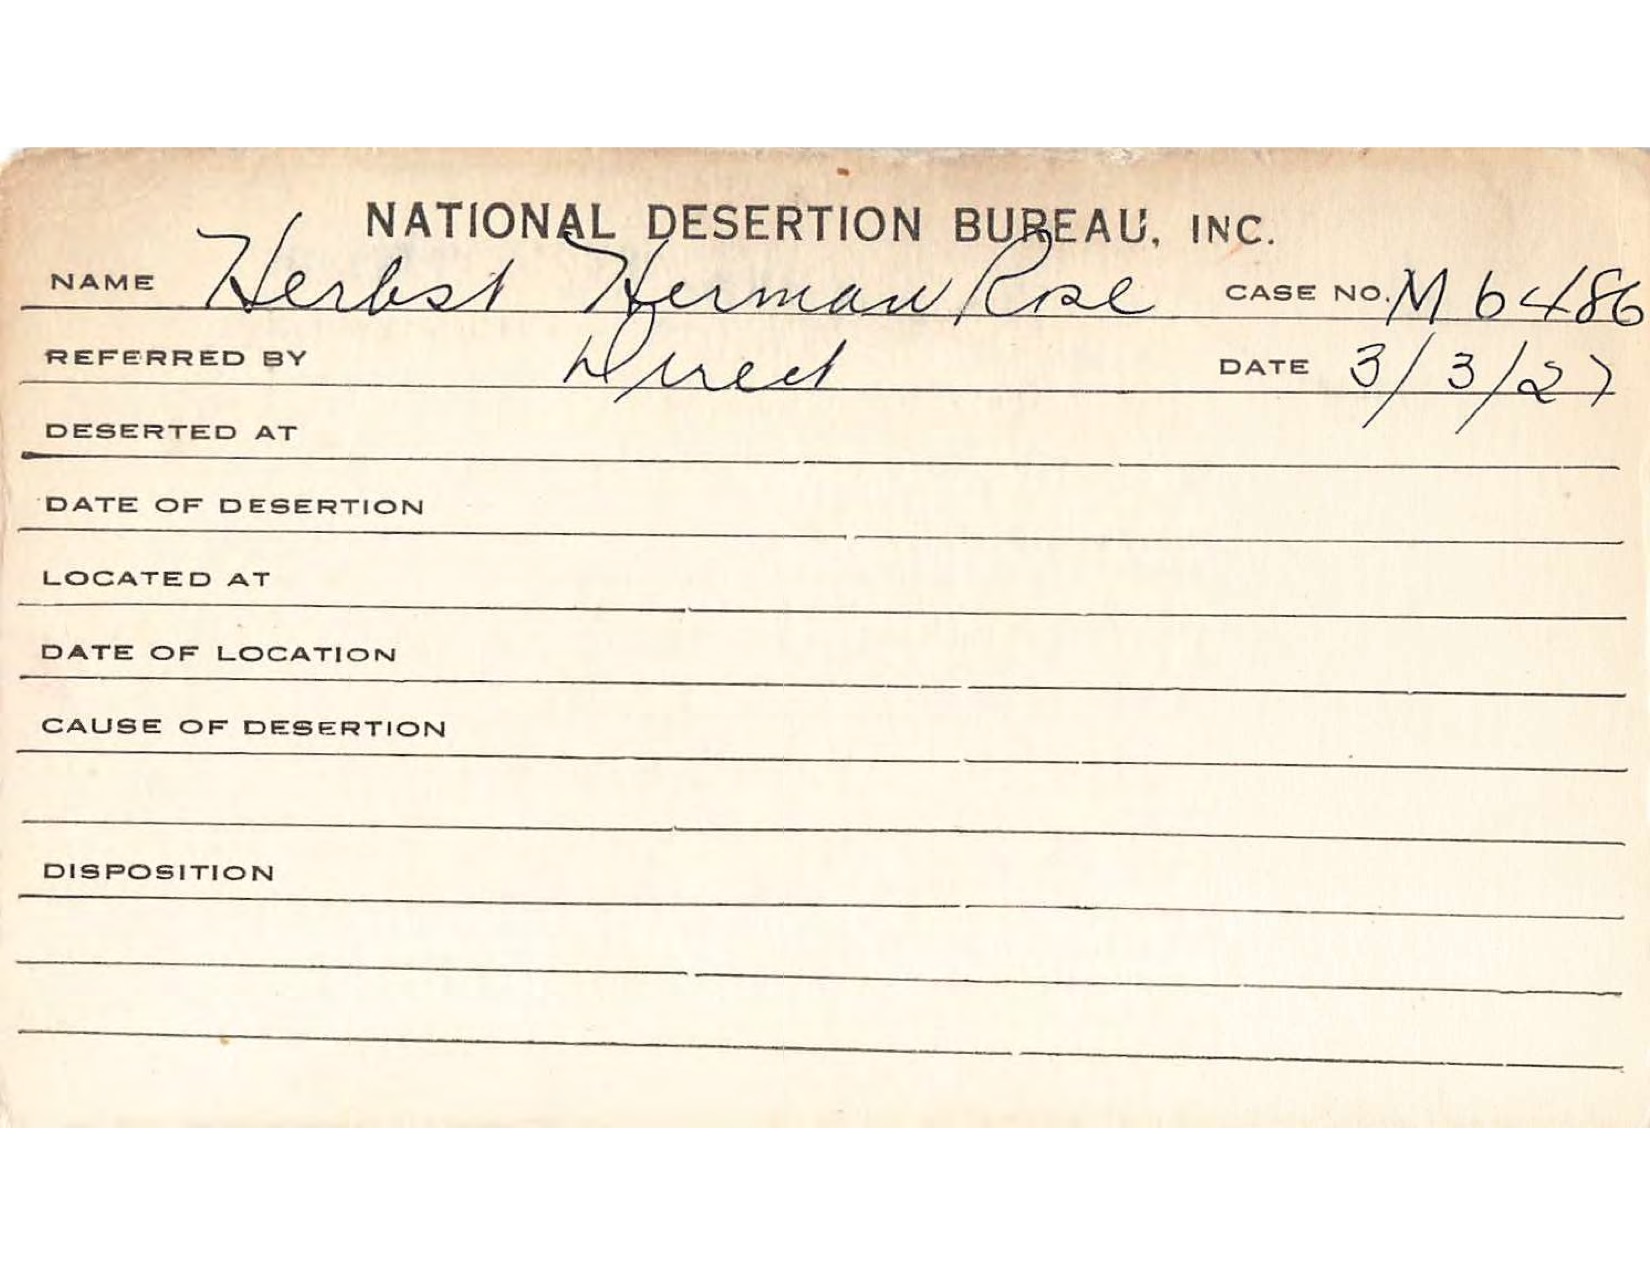 NATIONAL DESERTION BUREAU, INC.
NAME Herbst Herman Rose CASE NO. M 6486
REFERRED BY Direct DATE 3/3/27
DESERTED AT
DATE OF DESERTION
LOCATED AT
DATE OF LOCATION
CAUSE OF DESERTION
DISPOSITION